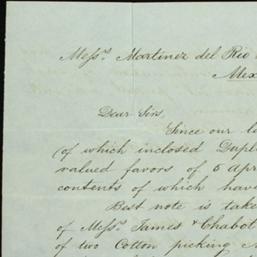 Messrs. Martinez del Rio
Mex
Dear Sirs,
Since our l
(of which inclosed Dupl
valued favors of 5 Apr
contents of which have
Best note is take
of Messrs. James & Chabot
of two Cotton picking M